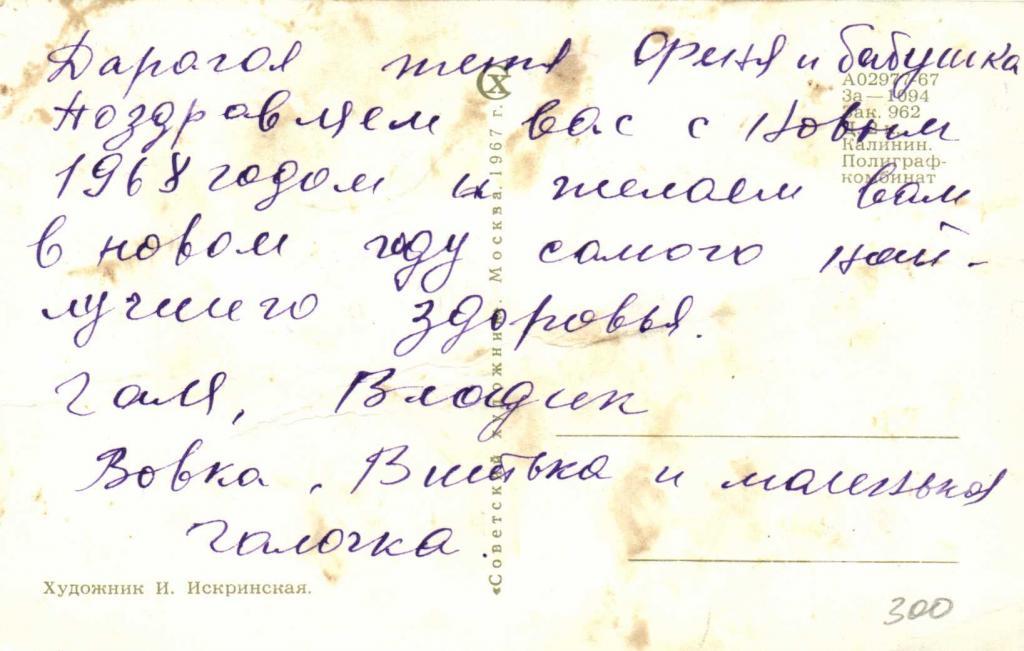 Дарагая тетя Фрыня и бабушка
Поздравляем вас с Новым
1968 годом и желаем вам
в новом году самого най-
лучшего здоровья.
Галя, Владик
Вовка, Витька и маленькая
Галочка.
А02977-67
За—1094
Зак. 962
Калинин.
Полиграф-
комбинат
«Советский художник». Москва. 1967 г.
СХ
Художник И. Искринская.
300